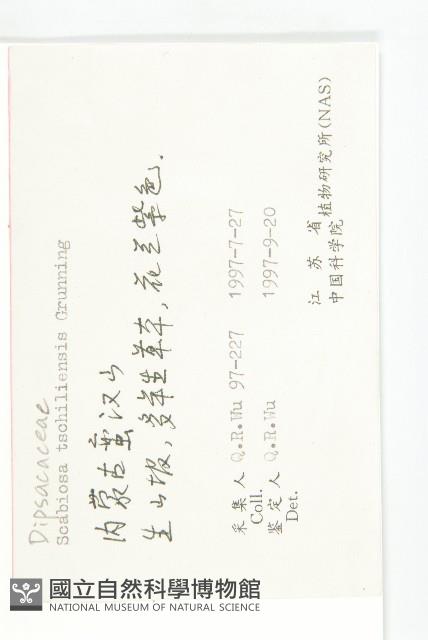 Dipsacaceae
Scabiosa tschiliensis Grunning
内蒙古蛮汉山
生山坡,多年生草本,花兰紫色.
采集人 Q.R.Wu 97-227 1997-7-27
Coll.
鉴定人 Q.R.Wu 1997-9-20
Det.
江苏省
中国科学院 植物研究所(NAS)
國立自然科學博物館
NATIONAL MUSEUM OF NATURAL SCIENCE